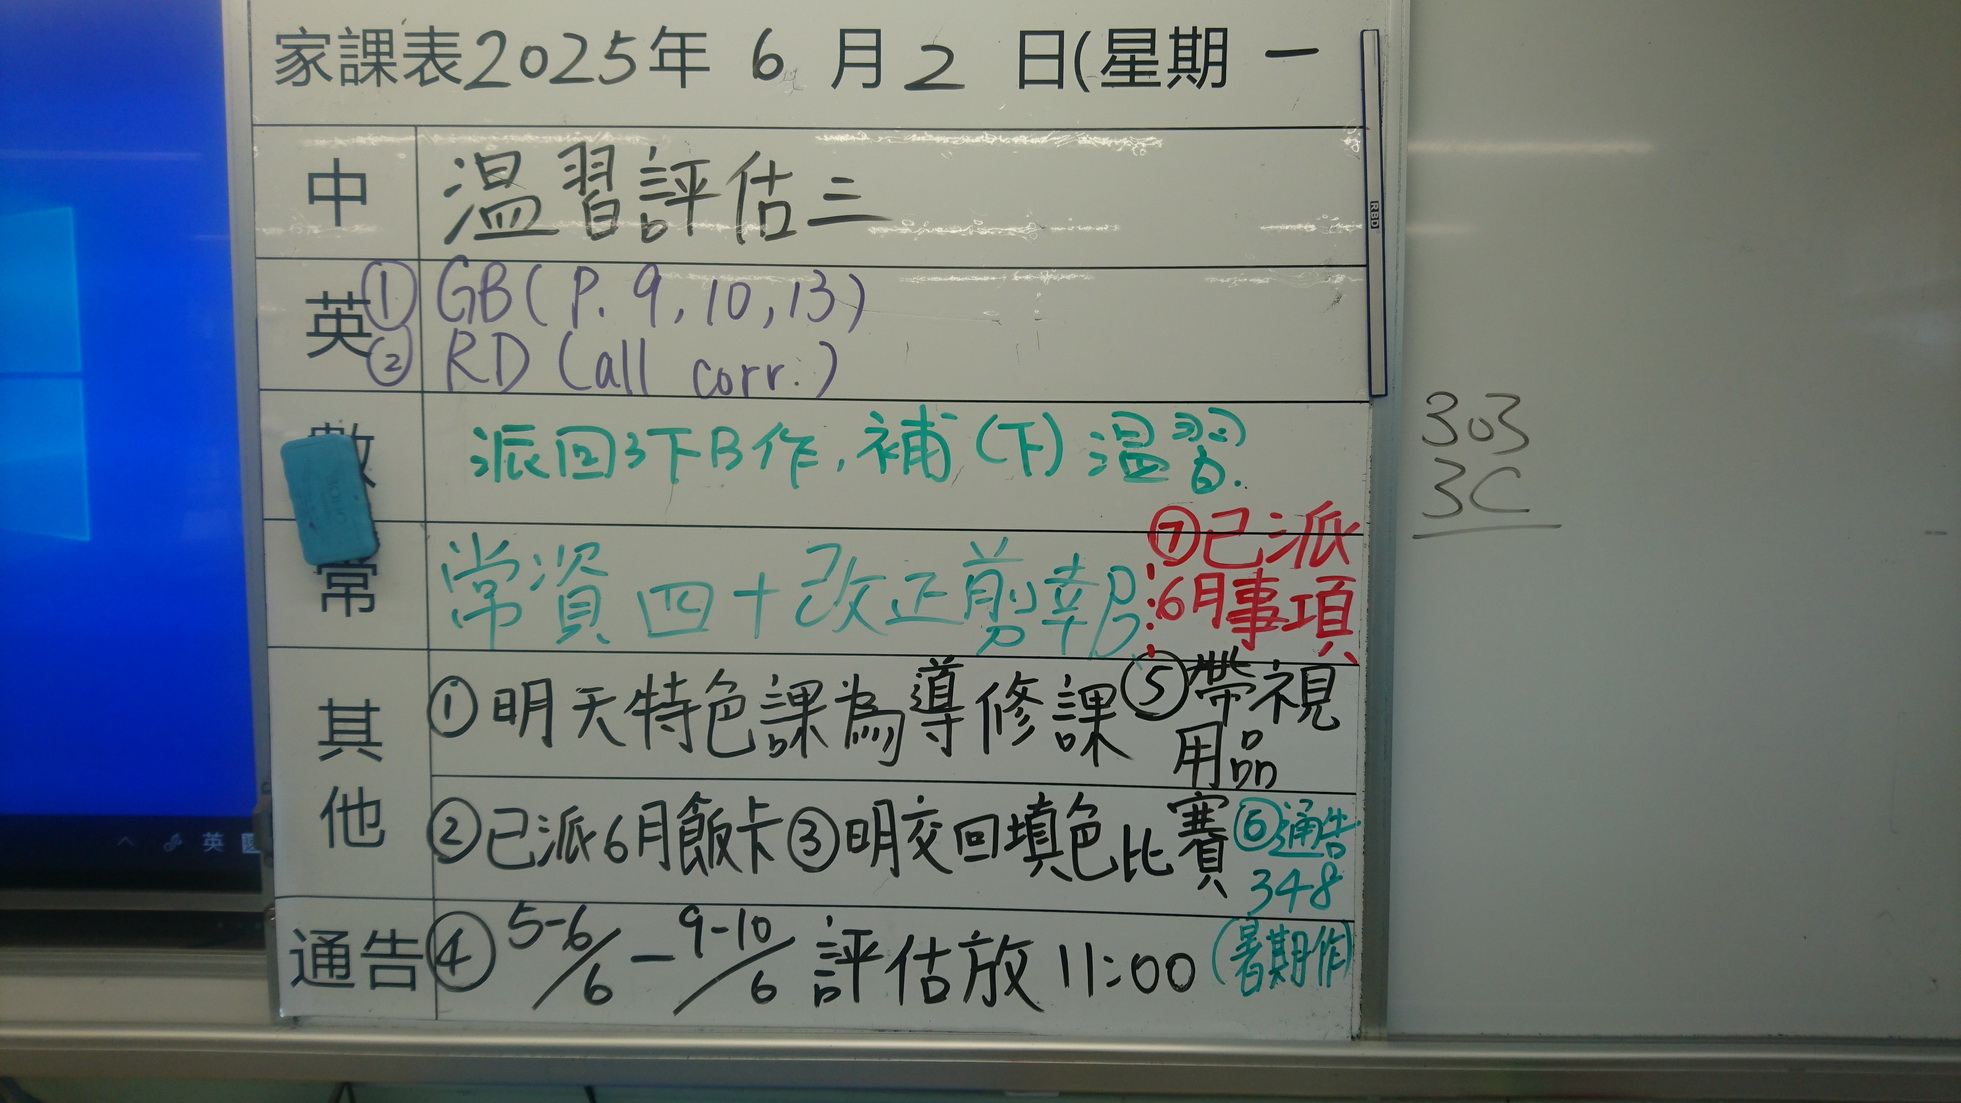 家課表2025年 6 月 2 日(星期 一
中 温習評估三
英 ① GB(P. 9, 10, 13)
② RD (all corr.)
數 派回3下B作, 補(下)温習.
常 常資四十改正剪報
⑦已派
6月事項
其他
①明天特色課為導修課
⑤帶視
用品
②已派6月飯卡③明交回填色比賽
⑥通告
348
(暑期作)
通告 ④ 5-6/6 — 9-10/6 評估放 11:00
303
3C
英
RBD